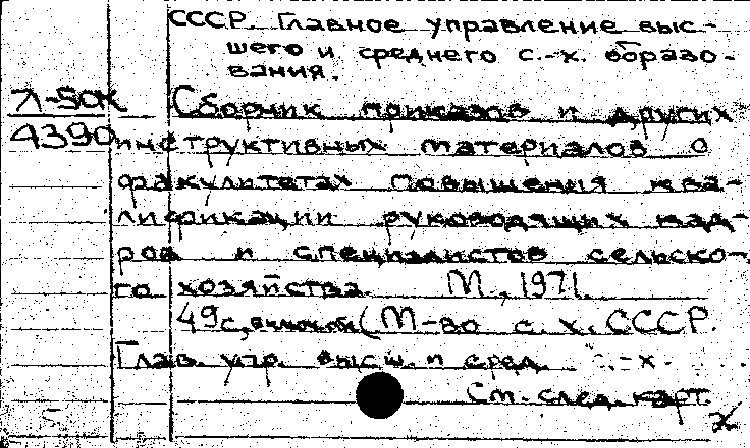 СССР. Главное управление выс-
шего и среднего с.-х. образо-
вания.
Л-50К Сборник приказов и других
4390 инструктивных материалов о
факультетах повышения ква-
лификации руководящих кад-
ров и специалистов сельско-
го хозяйства. М., 1971.
49с, включ. обл. (М-во с. х. СССР.
Глав. упр. высш. и сред. с.-х.
См. след. карт.